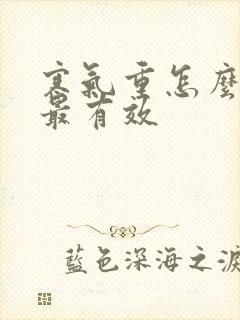 寒氣重怎麼
最有效
藍色深海之淚